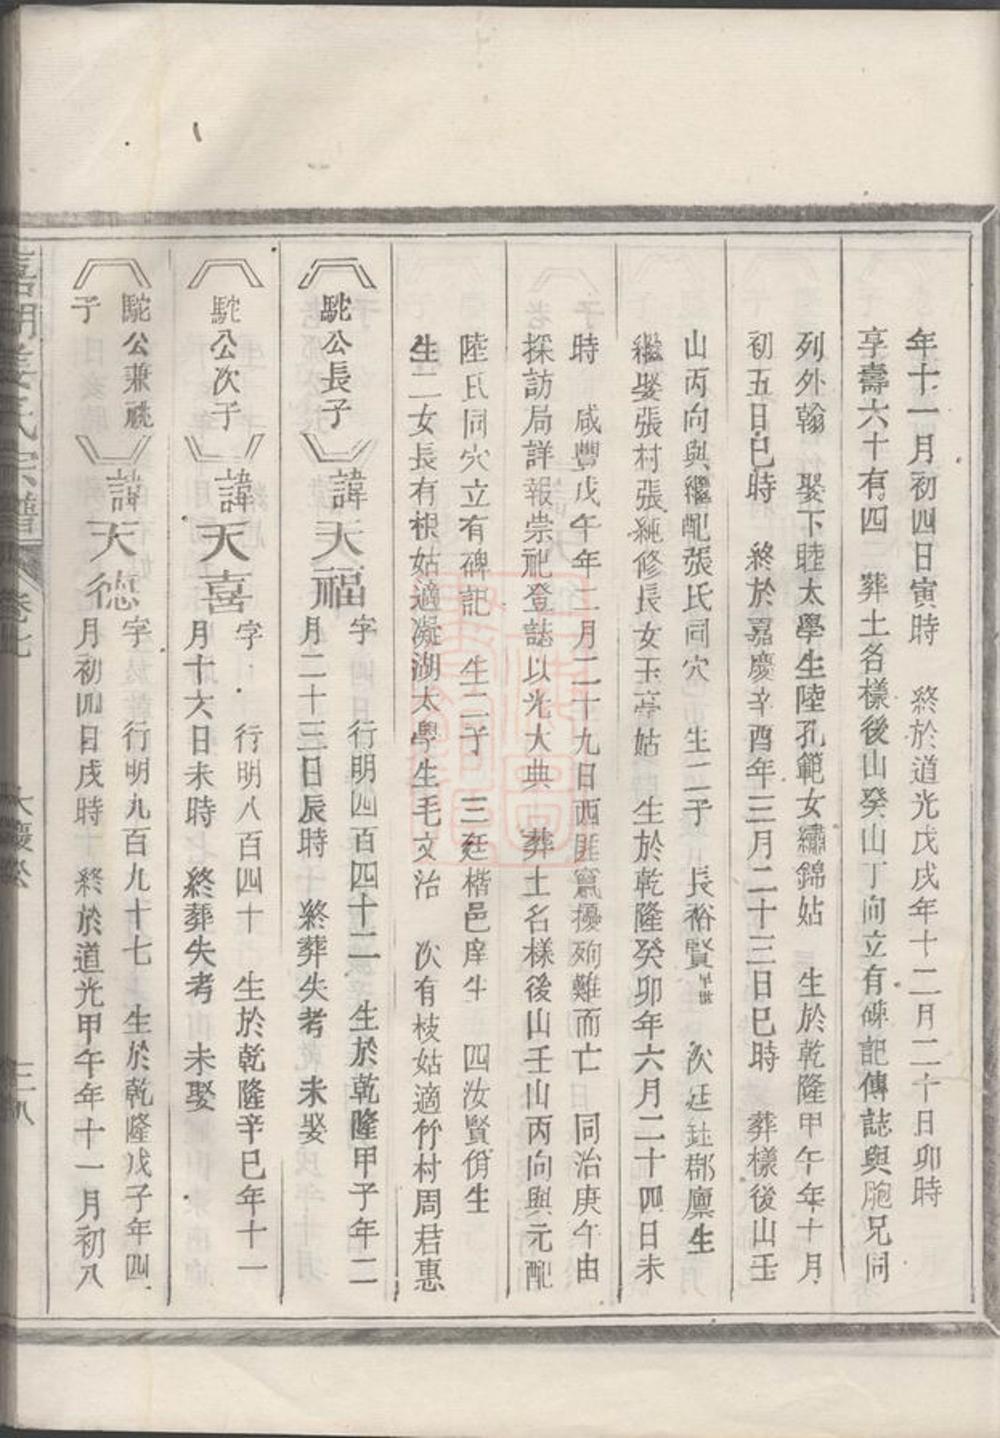 年十一月初四日寅時　終於道光戊戌年十二月二十日卯時
享壽六十有四　葬土名樣後山癸山丁向立有碑記傳誌與胞兄同
列外翰　娶下睦太學生陸孔範女繡錦姑　生於乾隆甲午年十月
初五日巳時　終於嘉慶辛酉年三月二十三日巳時　葬樣後山壬
山丙向與繼配張氏同穴　生二子　長裕賢早世　次廷鈺郡廩生
繼娶張村張純修長女玉亭姑　生於乾隆癸卯年六月二十四日未
時　咸豐戊午年二月二十九日西匪竄擾殉難而亡　同治庚午由
採訪局詳報崇祀登誌以光大典　葬土名樣後山壬山丙向與元配
陸氏同穴立有碑記　生二子　三廷楷邑庠生　四汝賢佾生
生二女長有根姑適凝湖太學生毛文治　次有枝姑適竹村周君惠
駝公長子
諱天福
字　行明四百四十二　生於乾隆甲子年二
月二十三日辰時　終葬失考　未娶
駝公次子
諱天喜
字　行明八百四十　生於乾隆辛巳年十一
月十六日未時　終葬失考　未娶
駝公兼祧
子
諱天德
字　行明九百九十七　生於乾隆戊子年四
月初四日戌時　終於道光甲午年十一月初八
氏宗譜
卷七
三八